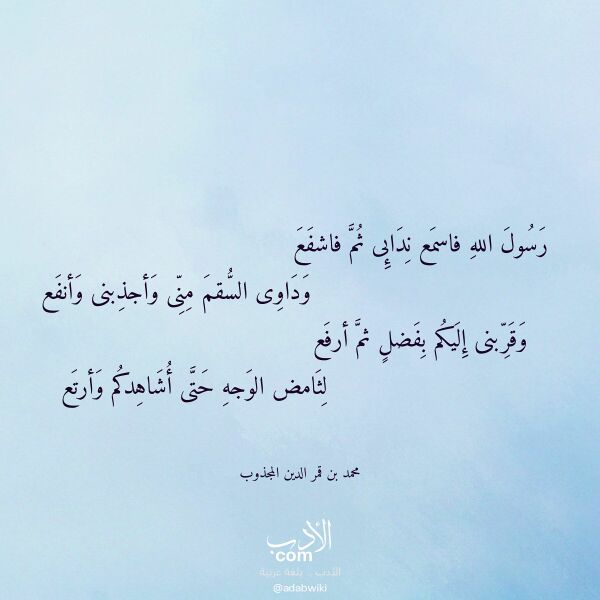 رَسُولَ اللهِ فاسمَع نِدَابِى ثُمَّ فاشفَعَ
وَدَاوِى السُّقمَ مِنِّى وَأجذِبنى وَأنفَع
وَقَرِّبنى إِلَيكُم بِفَضلٍ ثمَّ أرفَع
لِثَامض الوَجهِ حَتَّى أُشَاهِدكُم وَأرتَع
محمد بن قمر الدين المجذوب
الأدب
com
الأدب .. بلغة عربية
@adabwiki